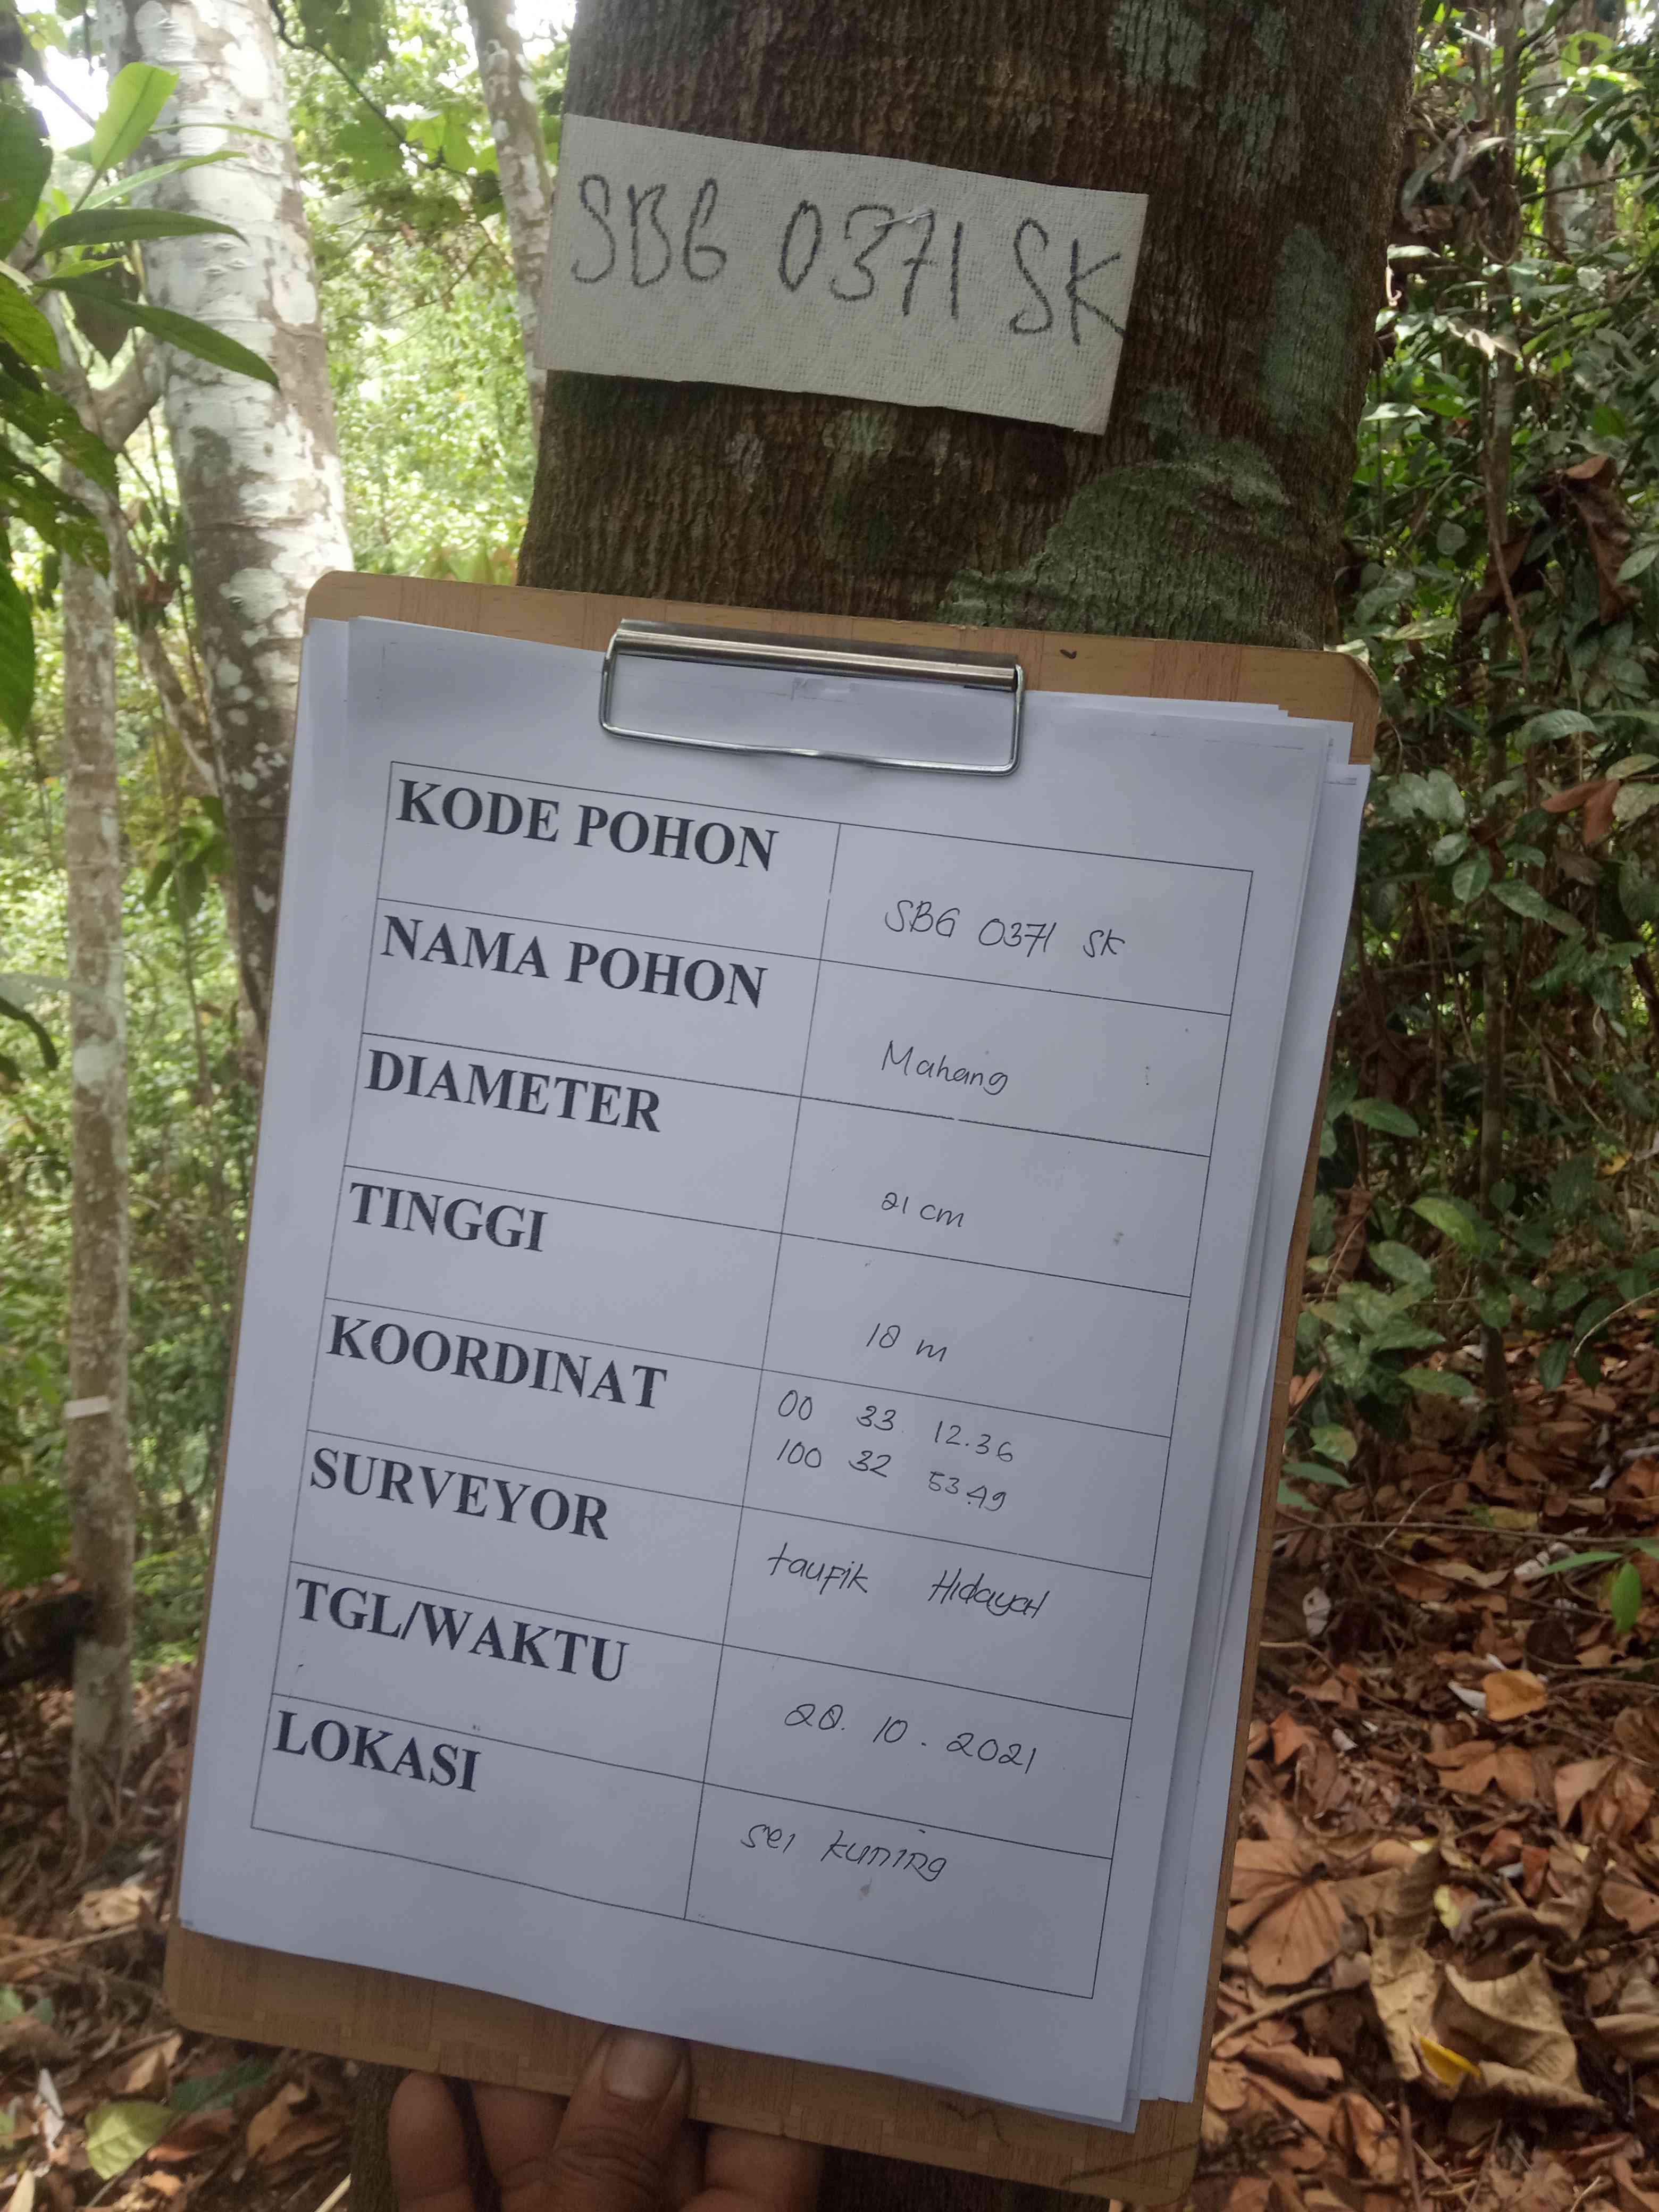 SBG 0371 SK
KODE POHON
SBG 0371 SK
NAMA POHON
Mahang
DIAMETER
21 cm
TINGGI
18 m
KOORDINAT
00 33 12.36
100 32 53.49
SURVEYOR
taufik Hidayat
TGL/WAKTU
28. 10 . 2021
LOKASI
sei kuning